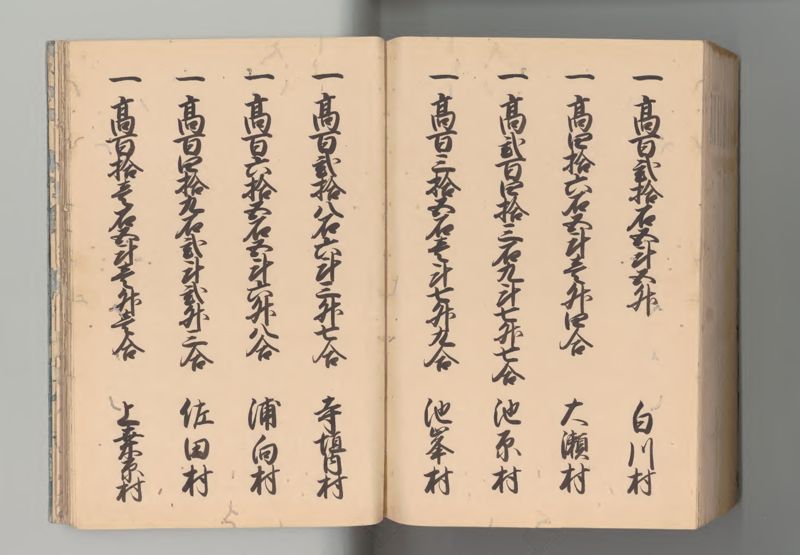 一 高百弐拾石五斗五升 白川村
一 高四拾六石五斗壱升四合 大瀬村
一 高弐百四拾三石九斗七升七合 池原村
一 高百三拾五石壱斗七升九合 池峯村
一 高百弐拾八石六斗三升七合 寺垣内村
一 高百六拾五石五斗六升八合 浦向村
一 高百四拾九石弐斗弐升三合 佐田村
一 高百拾壱石五斗壱升壱合 上桑原村